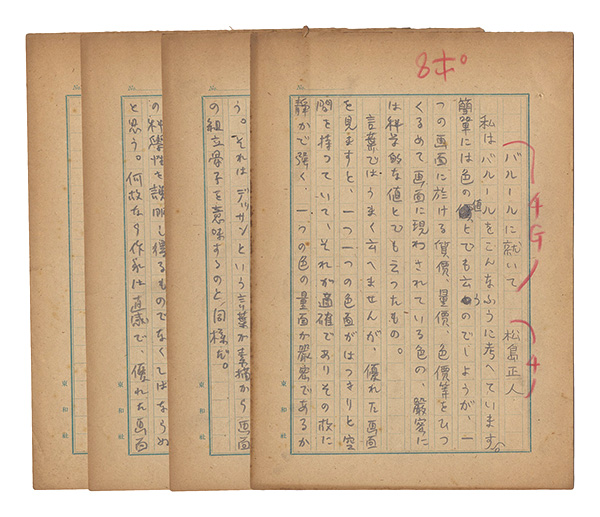 8ポ
バルールに就いて 松島正人
4G
4
私はバルールをこんなふうに考へています。
簡単には色の値とでも云うのでしょうが、一
つの画面に於ける質價、量價、色價等をひつ
くるめて画面に現わされている色の、嚴密に
は科学的な値とでも云つたもの。
言葉ではうまく云へませんが、優れた画面
を見ますと、一つ一つの色面がはつきりと空
間を持つていて、それが適確でありその故に
静かで强く、一つの色の量面が嚴密であるか
東和社
No.
う。それはデッサンという言葉が素描から画面
の組立骨子を意味するのと同様だ。
東和社
No.
の科學性を説明し得るものでなくてはならぬ
と思う。何故なら作家は直感で、優れた画面
東和社
No.